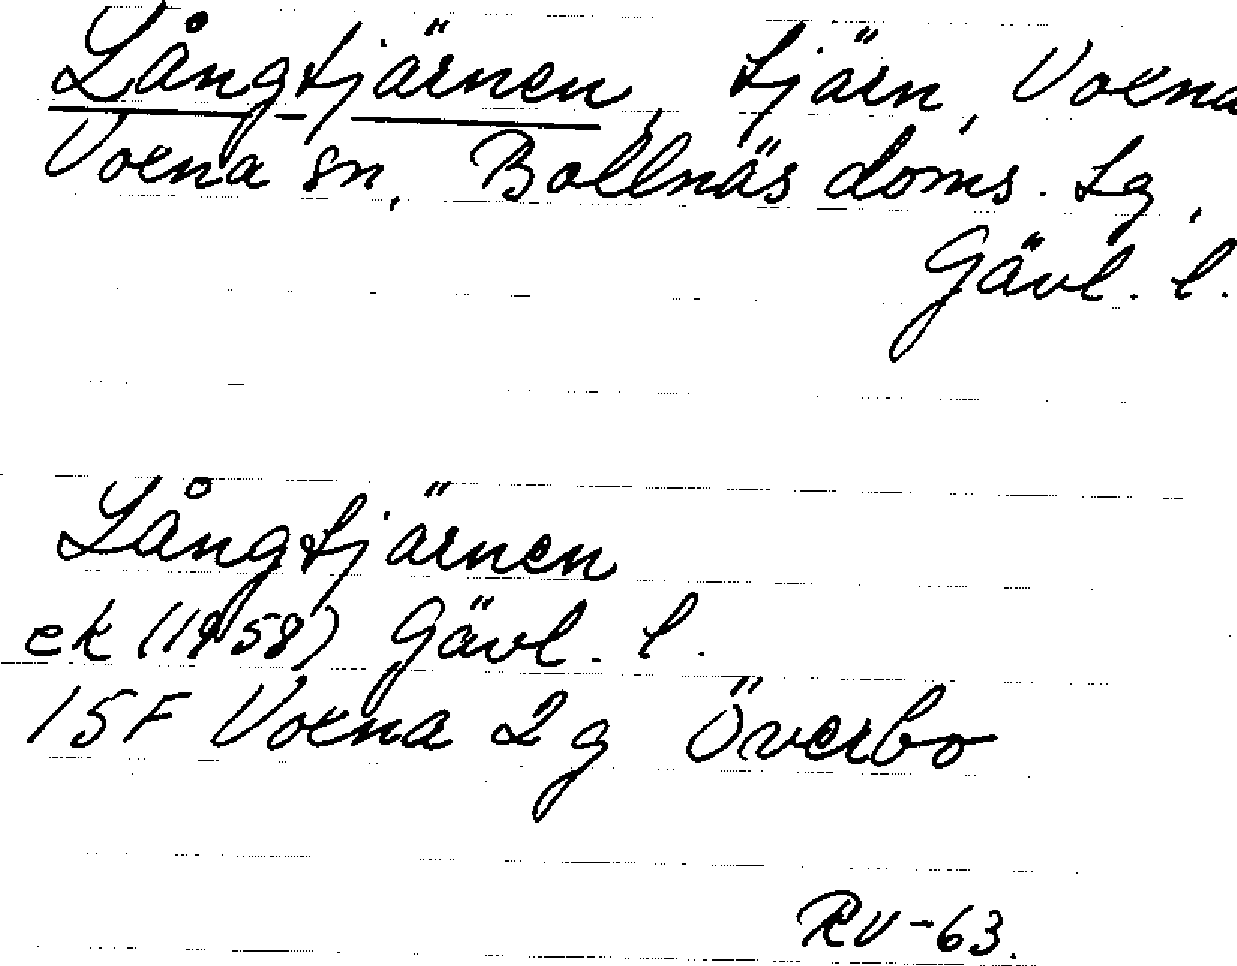 Långtjärnen, tjärn, Voxna
Voxna sn, Bollnäs doms. tg,
Gävl. l.
Långtjärnen
ek (1958) Gävl. l.
15F Voxna 2g Överbo
RV-63.